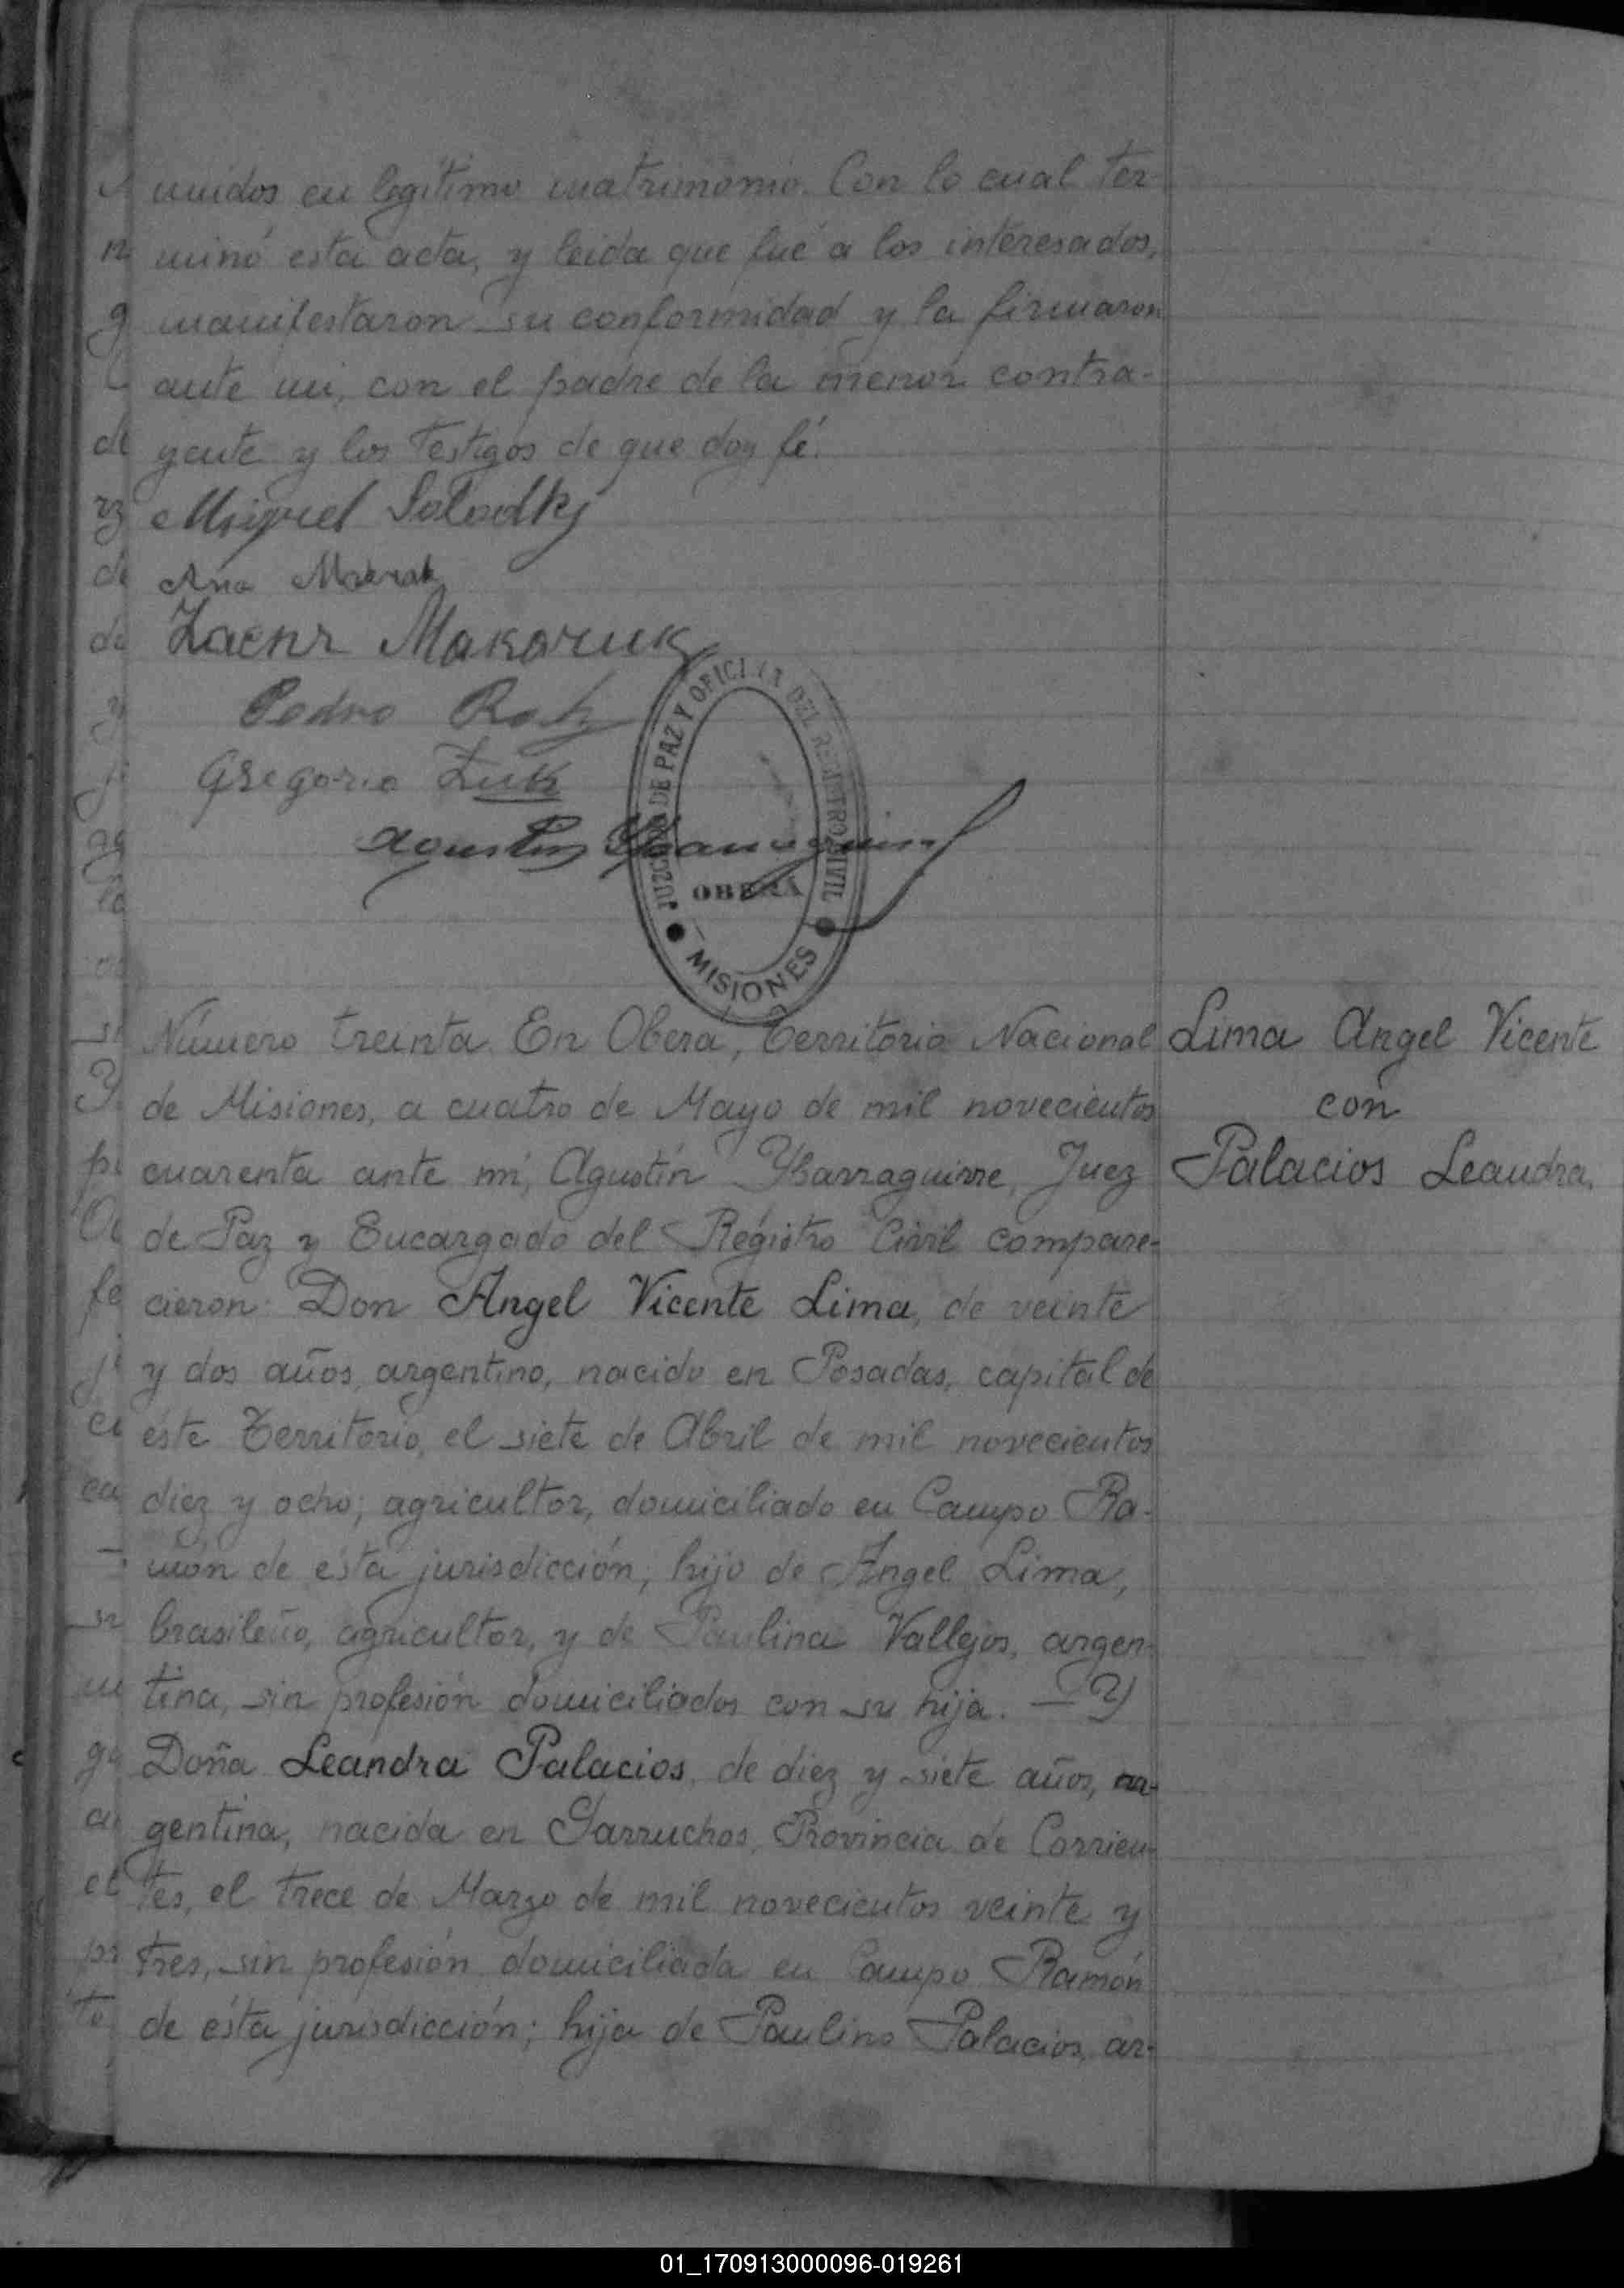 unidos en legítimo matrimonio. Con lo cual ter-
minó esta acta, y leida que fué a los interesados,
manifestaron su conformidad y la firmaron
ante mi, con el padre de la menor contra-
yente y los testigos de que doy fé.
Miguel
Ana
Makaruk
Pedro
Gregorio Zuk
Agustin Ybarraguirre
JUZGADO DE PAZ Y OFICINA DEL REGISTRO CIVIL
OBERA
MISIONES
Lima Angel Vicente
con
Palacios Leandra.
Número treinta. En Oberá, Territorio Nacional
de Misiones, a cuatro de Mayo de mil novecientos
cuarenta ante mí, Agustín Ybarraguirre, Juez
de Paz y Encargado del Registro Civil compare-
cieron: Don Angel Vicente Lima, de veinte
y dos años, argentino, nacido en Posadas, capital de
éste Territorio, el siete de Abril de mil novecientos
diez y ocho; agricultor, domiciliado en Campo Ra-
món de ésta jurisdicción; hijo de Angel Lima,
brasileño, agricultor, y de Paulina Vallejos, argen-
tina, sin profesión domiciliados con su hija. — Y
Doña Leandra Palacios, de diez y siete años, ar-
gentina, nacida en Garruchos, Provincia de Corrien-
tes, el trece de Marzo de mil novecientos veinte y
tres, sin profesión domiciliada en Campo Ramón
de ésta jurisdicción; hija de Paulino Palacios, ar-
01_170913000096-019261